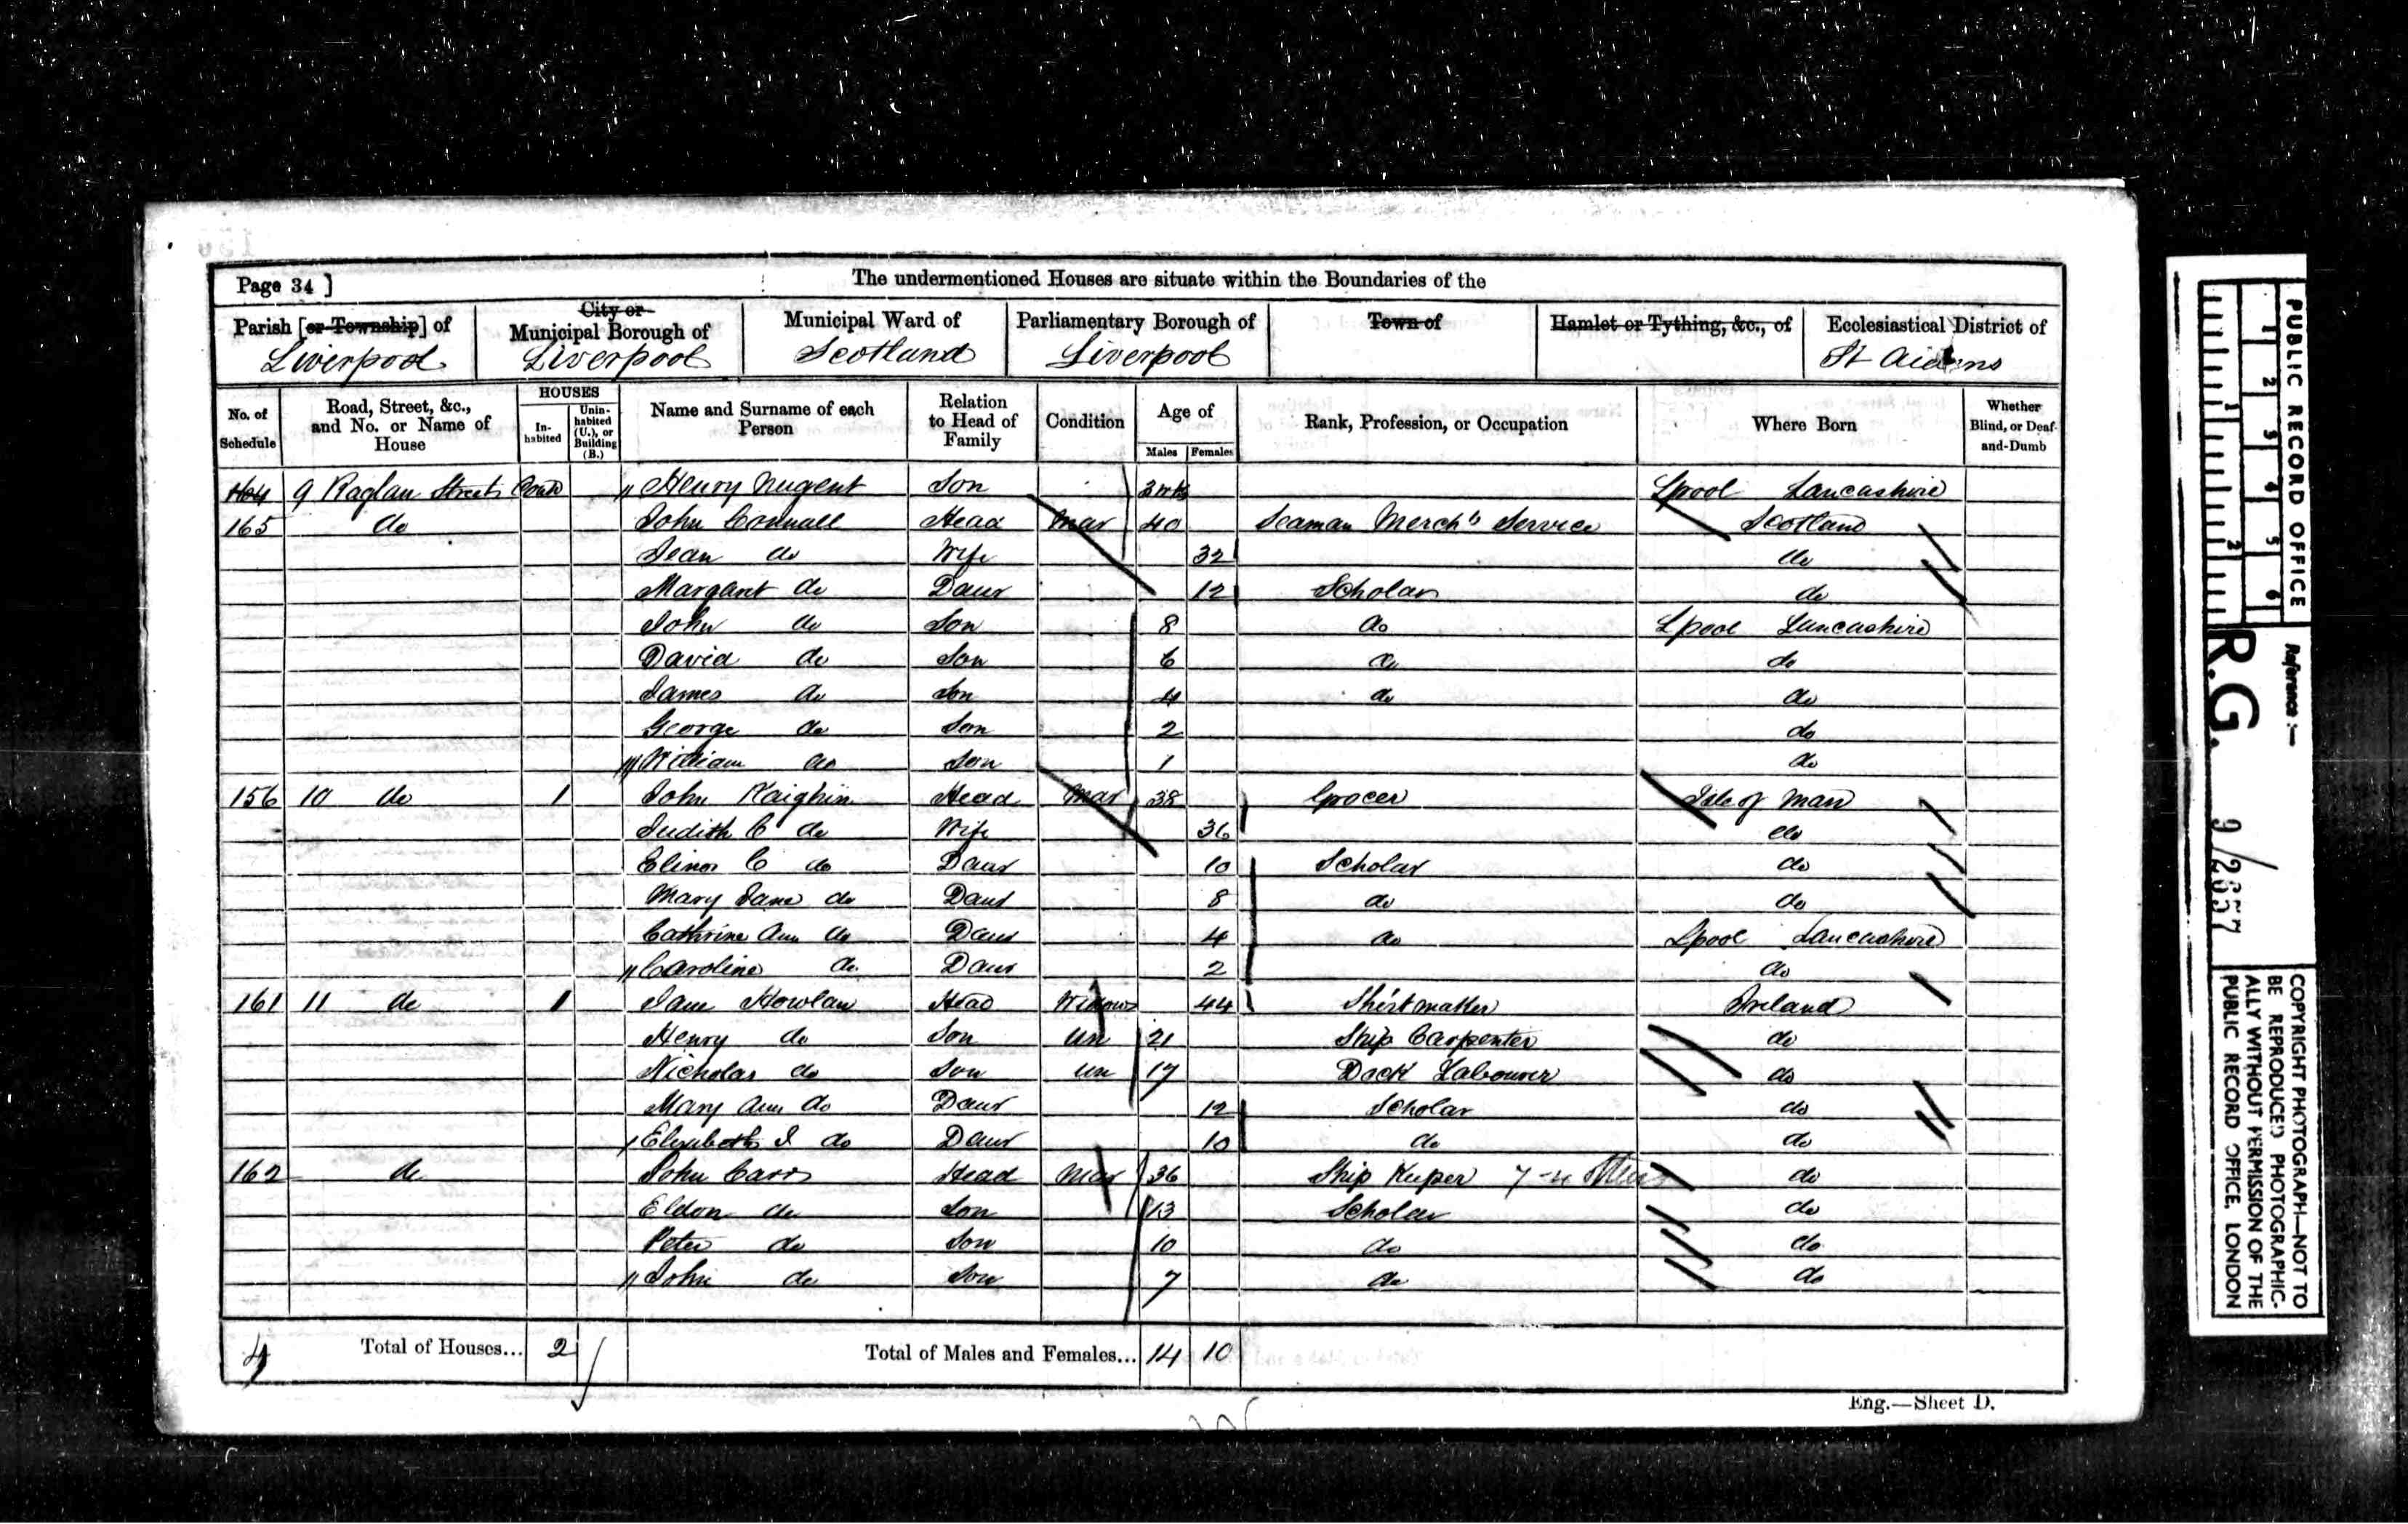 Page 34 ]
The undermentioned Houses are situate within the Boundaries of the
Parish [or Township] of
Liverpool
City or Municipal Borough of
Liverpool
Municipal Ward of
Scotland
Parliamentary Borough of
Liverpool
Town of
Hamlet or Tything, &c., of
Ecclesiastical District of
St Aidans
No. of Schedule
Road, Street, &c., and No. or Name of House
HOUSES
In-habited
Unin-habited (U.), or Building (B.)
Name and Surname of each Person
Relation to Head of Family
Condition
Age of
Males
Females
Rank, Profession, or Occupation
Where Born
Whether Blind, or Deaf-and-Dumb
164 9 Raglan Street Contd Henry Nugent Son 3 wks Lpool Lancashire
165 do John Connall Head Mar 40 Seaman Mercht Service Scotland
Jean do Wife 32 do
Margaret do Daur 12 Scholar do
John do Son 8 do Lpool Lancashire
David do Son 6 do do
James do Son 4 do do
George do Son 2 do
William do Son 1 do
156 10 do 1 John Kaighin Head Mar 38 Grocer Isle of Man
Judith C do Wife 36 do
Elinor C do Daur 10 Scholar do
Mary Jane do Daur 8 do do
Cathrine Ann do Daur 4 do Lpool Lancashire
Caroline do Daur 2 do
161 11 do 1 Jane Howlan Head Widow 44 Shirt maker Ireland
Henry do Son Un 21 Ship Carpenter do
Nicholas do Son Un 17 Dock Labourer do
Mary Ann do Daur 12 Scholar do
Elizabeth J do Daur 10 do do
162 do John Carr Head Mar 36 Ship Keeper do
Eldon do Son 13 Scholar do
Peter do Son 10 do do
John do Son 7 do do
4 Total of Houses... 2 Total of Males and Females... 14 10
Eng.—Sheet D.
PUBLIC RECORD OFFICE
1 2 3 4 5 6
1 2
Reference :—
R.G. 9/2657
COPYRIGHT PHOTOGRAPH—NOT TO
BE REPRODUCED PHOTOGRAPHIC-
ALLY WITHOUT PERMISSION OF THE
PUBLIC RECORD OFFICE, LONDON